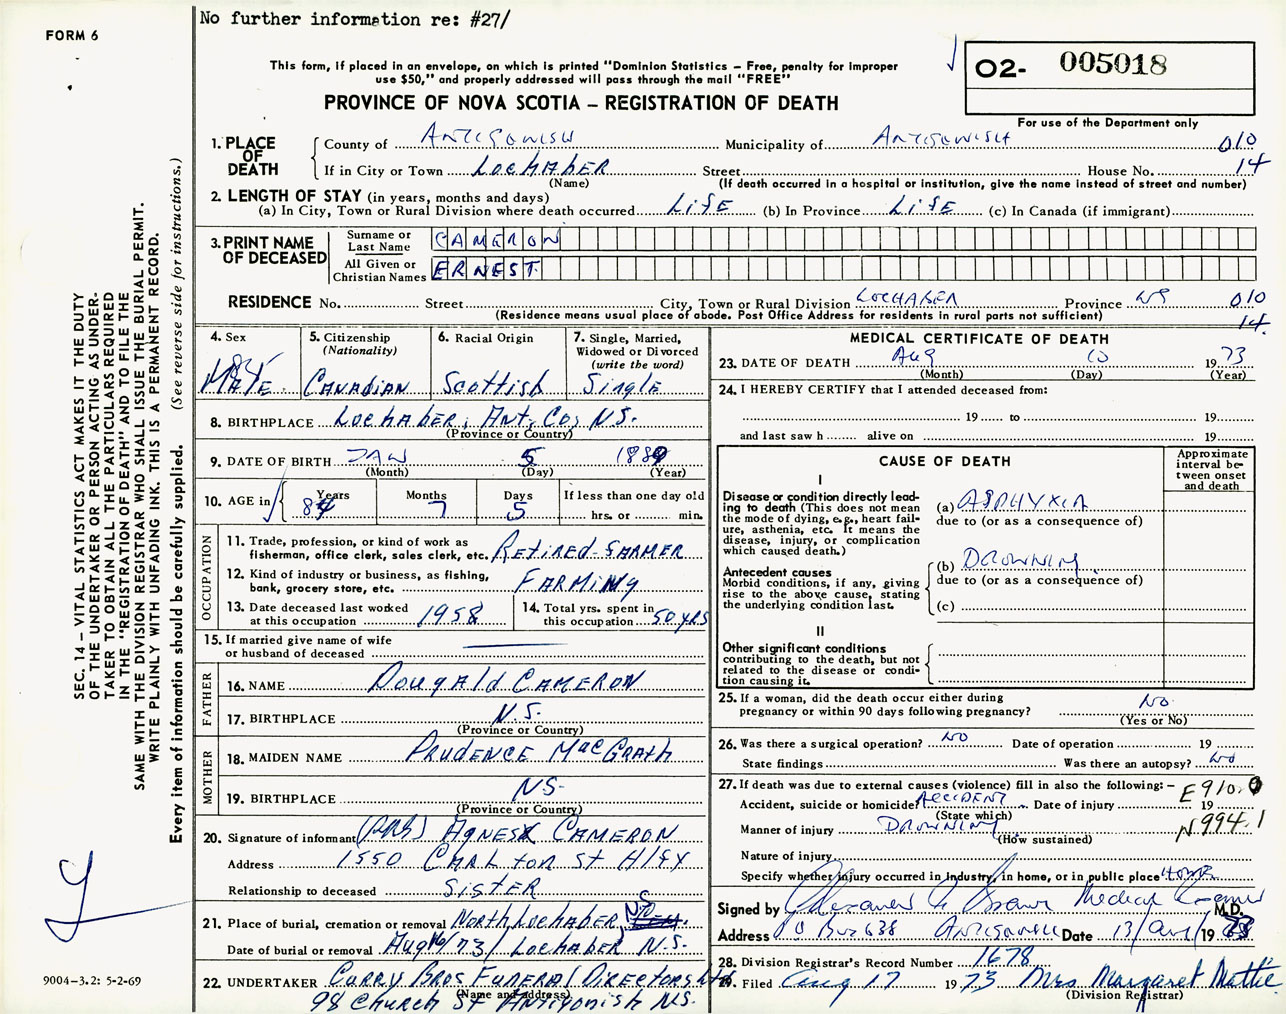 No further information re: #27/
FORM 6
This form, if placed in an envelope, on which is printed "Dominion Statistics – Free, penalty for improper
use $50," and properly addressed will pass through the mail "FREE"
PROVINCE OF NOVA SCOTIA – REGISTRATION OF DEATH
O2- 005018
For use of the Department only
1. PLACE OF DEATH
County of ANTIGONISH Municipality of ANTIGONISH 010
If in City or Town LOCHABER Street House No. 14
(Name) (If death occurred in a hospital or institution, give the name instead of street and number)
2. LENGTH OF STAY (in years, months and days)
(a) In City, Town or Rural Division where death occurred LIFE (b) In Province LIFE (c) In Canada (if immigrant)
3. PRINT NAME OF DECEASED
Surname or Last Name CAMERON
All Given or Christian Names ERNEST
RESIDENCE No. Street City, Town or Rural Division LOCHABER Province NS 010
(Residence means usual place of abode. Post Office Address for residents in rural parts not sufficient) 14.
4. Sex MALE
5. Citizenship (Nationality) CANADIAN
6. Racial Origin Scottish
7. Single, Married, Widowed or Divorced (write the word) Single
8. BIRTHPLACE LOCHABER, ANT. CO, N.S.
(Province or Country)
9. DATE OF BIRTH JAN 5 1889
(Month) (Day) (Year)
10. AGE in Years 84 Months 7 Days 5 If less than one day old hrs. or min.
OCCUPATION
11. Trade, profession, or kind of work as
fisherman, office clerk, sales clerk, etc. RETIRED-FARMER
12. Kind of industry or business, as fishing,
bank, grocery store, etc. FARMING
13. Date deceased last worked
at this occupation 1958
14. Total yrs. spent in
this occupation 50 YRS
15. If married give name of wife
or husband of deceased
FATHER
16. NAME Dougald CAMERON
17. BIRTHPLACE N.S.
(Province or Country)
MOTHER
18. MAIDEN NAME PRUDENCE MacGrath
19. BIRTHPLACE N.S.
(Province or Country)
20. Signature of informant (MRS) AGNES CAMERON
Address 1550 CHALTON St Hlfx
Relationship to deceased SISTER
21. Place of burial, cremation or removal North Lochaber, N.S.
Date of burial or removal Aug 16/73/ Lochaber, N.S.
22. UNDERTAKER Curry Bros Funeral Directors Ltd
(Name and address)
98 Church St Antigonish N.S.
MEDICAL CERTIFICATE OF DEATH
23. DATE OF DEATH Aug 10 1973
(Month) (Day) (Year)
24. I HEREBY CERTIFY that I attended deceased from:
19 to 19
and last saw h alive on 19
CAUSE OF DEATH
Approximate interval between onset and death
I
Disease or condition directly lead-
ing to death (This does not mean
the mode of dying, e.g., heart fail-
ure, asthenia, etc. It means the
disease, injury, or complication
which caused death.)
(a) ASPHYXIA
due to (or as a consequence of)
Antecedent causes
Morbid conditions, if any, giving
rise to the above cause, stating
the underlying condition last.
(b) DROWNING
due to (or as a consequence of)
(c)
II
Other significant conditions
contributing to the death, but not
related to the disease or condi-
tion causing it.
25. If a woman, did the death occur either during
pregnancy or within 90 days following pregnancy? NO
(Yes or No)
26. Was there a surgical operation? NO Date of operation 19
State findings Was there an autopsy? NO
27. If death was due to external causes (violence) fill in also the following:– E910.0
Accident, suicide or homicide? ACCIDENT Date of injury 19
(State which)
Manner of injury DROWNING N994.1
(How sustained)
Nature of injury
Specify whether injury occurred in industry, in home, or in public place HOME
Signed by Medical M.D.
Address PO Box 638 ANTIGONISH Date 13/Aug/1973
28. Division Registrar's Record Number 1678
29. Filed Aug 17 1973 Mrs Margaret Mattie
(Division Registrar)
SEC. 14 – VITAL STATISTICS ACT MAKES IT THE DUTY
OF THE UNDERTAKER OR PERSON ACTING AS UNDER-
TAKER TO OBTAIN ALL THE PARTICULARS REQUIRED
IN THE "REGISTRATION OF DEATH" AND TO FILE THE
SAME WITH THE DIVISION REGISTRAR WHO SHALL ISSUE THE BURIAL PERMIT.
WRITE PLAINLY WITH UNFADING INK. THIS IS A PERMANENT RECORD.
Every item of information should be carefully supplied. (See reverse side for instructions.)
9004–3.2: 5-2-69